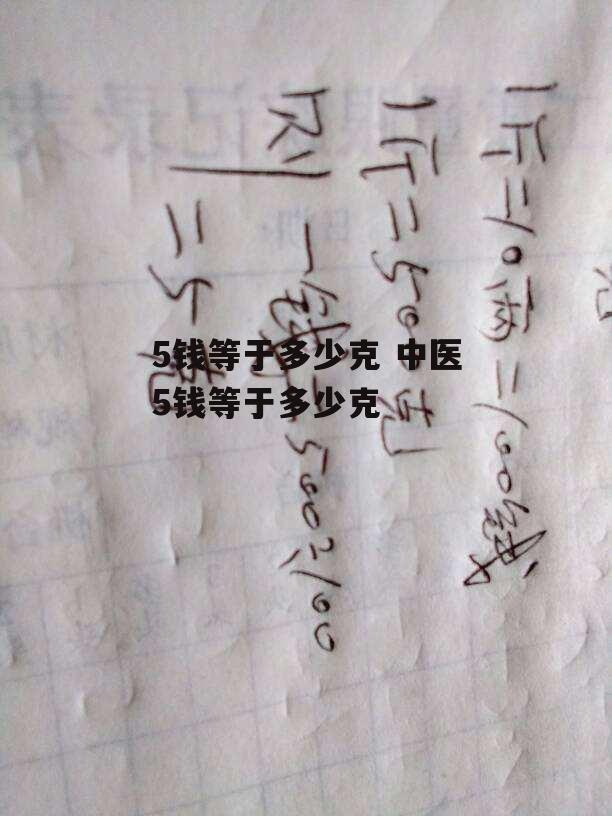 1斤=10两=100钱
1斤=500克
则一钱=500÷100
=5克
5钱等于多少克 中医
5钱等于多少克